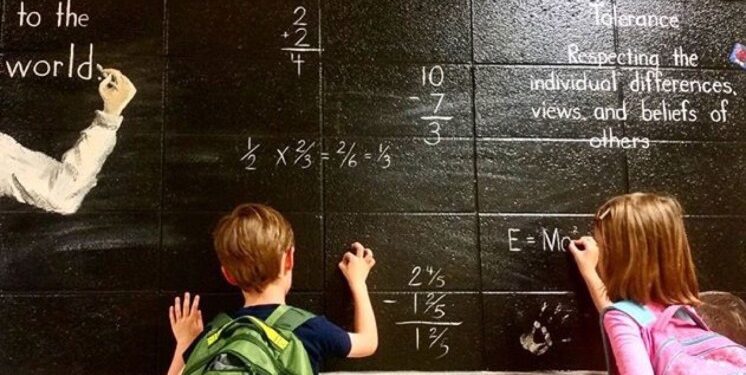 to the
world.
2
+2
4
10
- 7
3
1/2 x 2/3 = 2/6 = 1/3
Tolerance
Respecting the
individual differences,
views, and beliefs of
others
E = Mc²
2 4/5
- 1 2/5
1 2/5